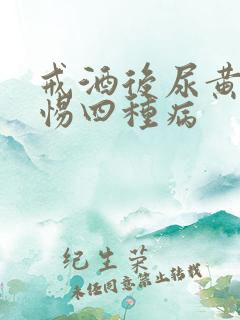 戒酒後尿黄
惕四種病
纪生荣
未经同意禁止转载